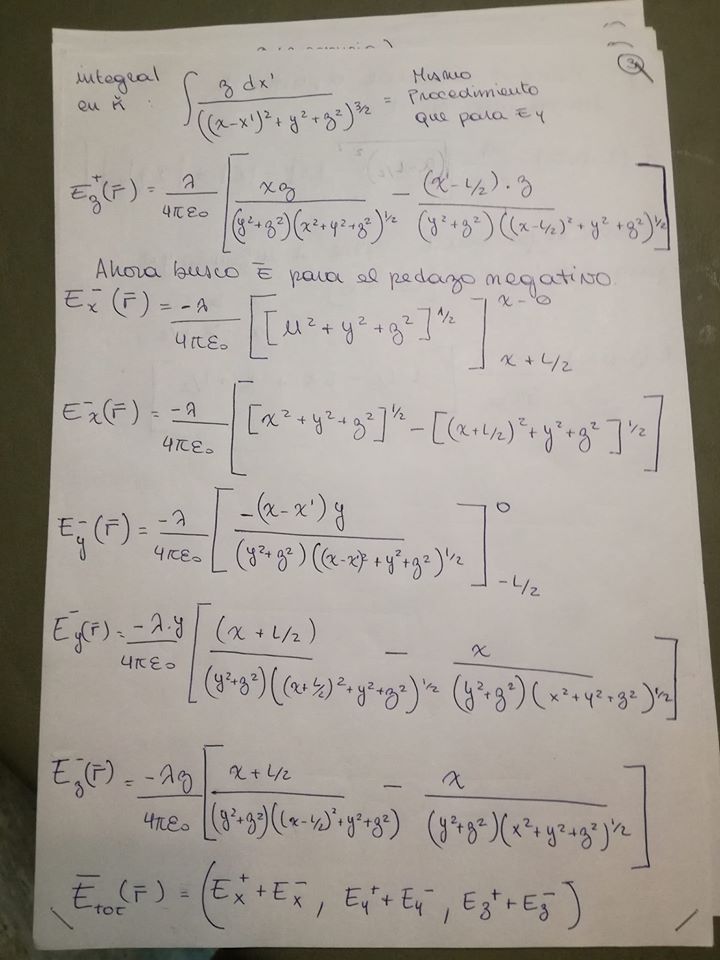 3
integral en x̌ : ∫ z dx' / ((x-x')² + y² + z²)^3/2 = Mismo Procedimiento que para Ey
E⁺z(r̄) = λ/4πε₀ [ xz / (y²+z²)(x²+y²+z²)^1/2 − (x-L/2)·z / (y²+z²)((x-L/2)²+y²+z²)^1/2 ]
Ahora busco Ē para el pedazo negativo.
E⁻x(r̄) = -λ/4πε₀ [ [μ² + y² + z²]^1/2 ] x-0 x+L/2
E⁻x(r̄) = -λ/4πε₀ [ [x²+y²+z²]^1/2 − [(x+L/2)²+y²+z²]^1/2 ]
E⁻y(r̄) = -λ/4πε₀ [ -(x-x')y / (y²+z²)((x-x')²+y²+z²)^1/2 ] 0 -L/2
E⁻y(r̄) = -λ·y/4πε₀ [ (x+L/2) / (y²+z²)((x+L/2)²+y²+z²)^1/2 − x / (y²+z²)(x²+y²+z²)^1/2 ]
E⁻z(r̄) = -λz/4πε₀ [ x+L/2 / (y²+z²)((x-L/2)²+y²+z²) − x / (y²+z²)(x²+y²+z²)^1/2 ]
Ētot(r̄) = (Ex⁺+Ex⁻, Ey⁺+Ey⁻, Ez⁺+Ez⁻)